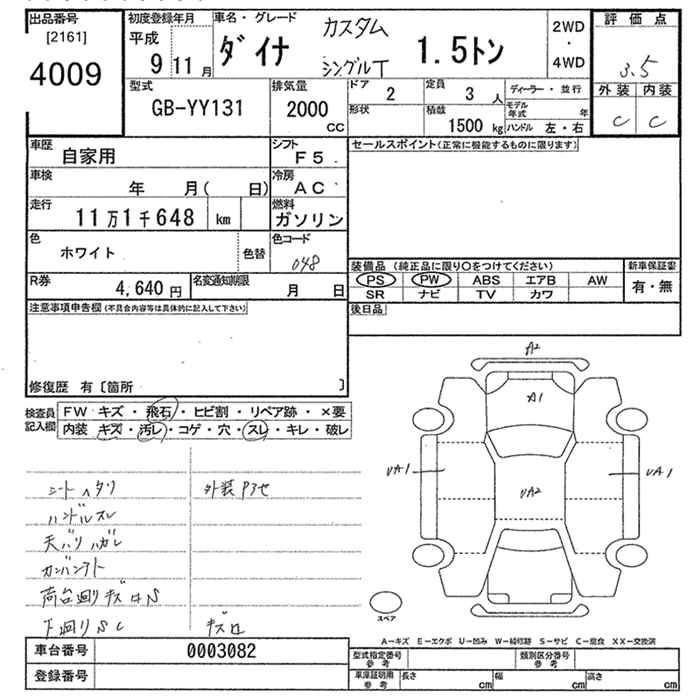 出品番号
[2161]
4009
初度登録年月
平成
9 11 月
車名・グレード
ダイナ カスタム シングルT 1.5トン
2WD
・
4WD
評価点
3.5
外装 内装
C C
型式
GB-YY131
排気量
2000
CC
ドア 2
定員 3 人
形状
積載 1500 kg
ディーラー・並行
モデル年式 年
ハンドル 左・右
車歴 自家用
シフト F5
車検 年 月( 日)
冷房 AC
走行 11万1千648 km
燃料 ガソリン
色 ホワイト 色替
色コード 048
R券 4,640 円
名変通知期限 月 日
セールスポイント(正常に機能するものに限ります)
装備品 (純正品に限り○をつけてください)
PS PW ABS エアB AW
SR ナビ TV カワ
新車保証書
有・無
後日品
注意事項申告欄(不具合内容等は具体的に記入して下さい)
修復歴 有〔箇所 〕
検査員記入欄
FW キズ・飛石・ヒビ割・リペア跡・×要
内装 キズ・汚レ・コゲ・穴・スレ・キレ・破レ
シートヘタリ
ハンドルスレ
天バリハガレ
カンバンアト
荷台廻りキズ
下廻りSC
外装
キズ
A2
A1
UA1
UA2
UA1
スペア
A-キズ E-エクボ U-凹み W-補修跡 S-サビ C-腐食 XX-交換済
車台番号 0003082
登録番号
型式指定番号
参考
類別区分番号
参考
車庫証明用
参考
長さ cm
幅 cm
高さ cm